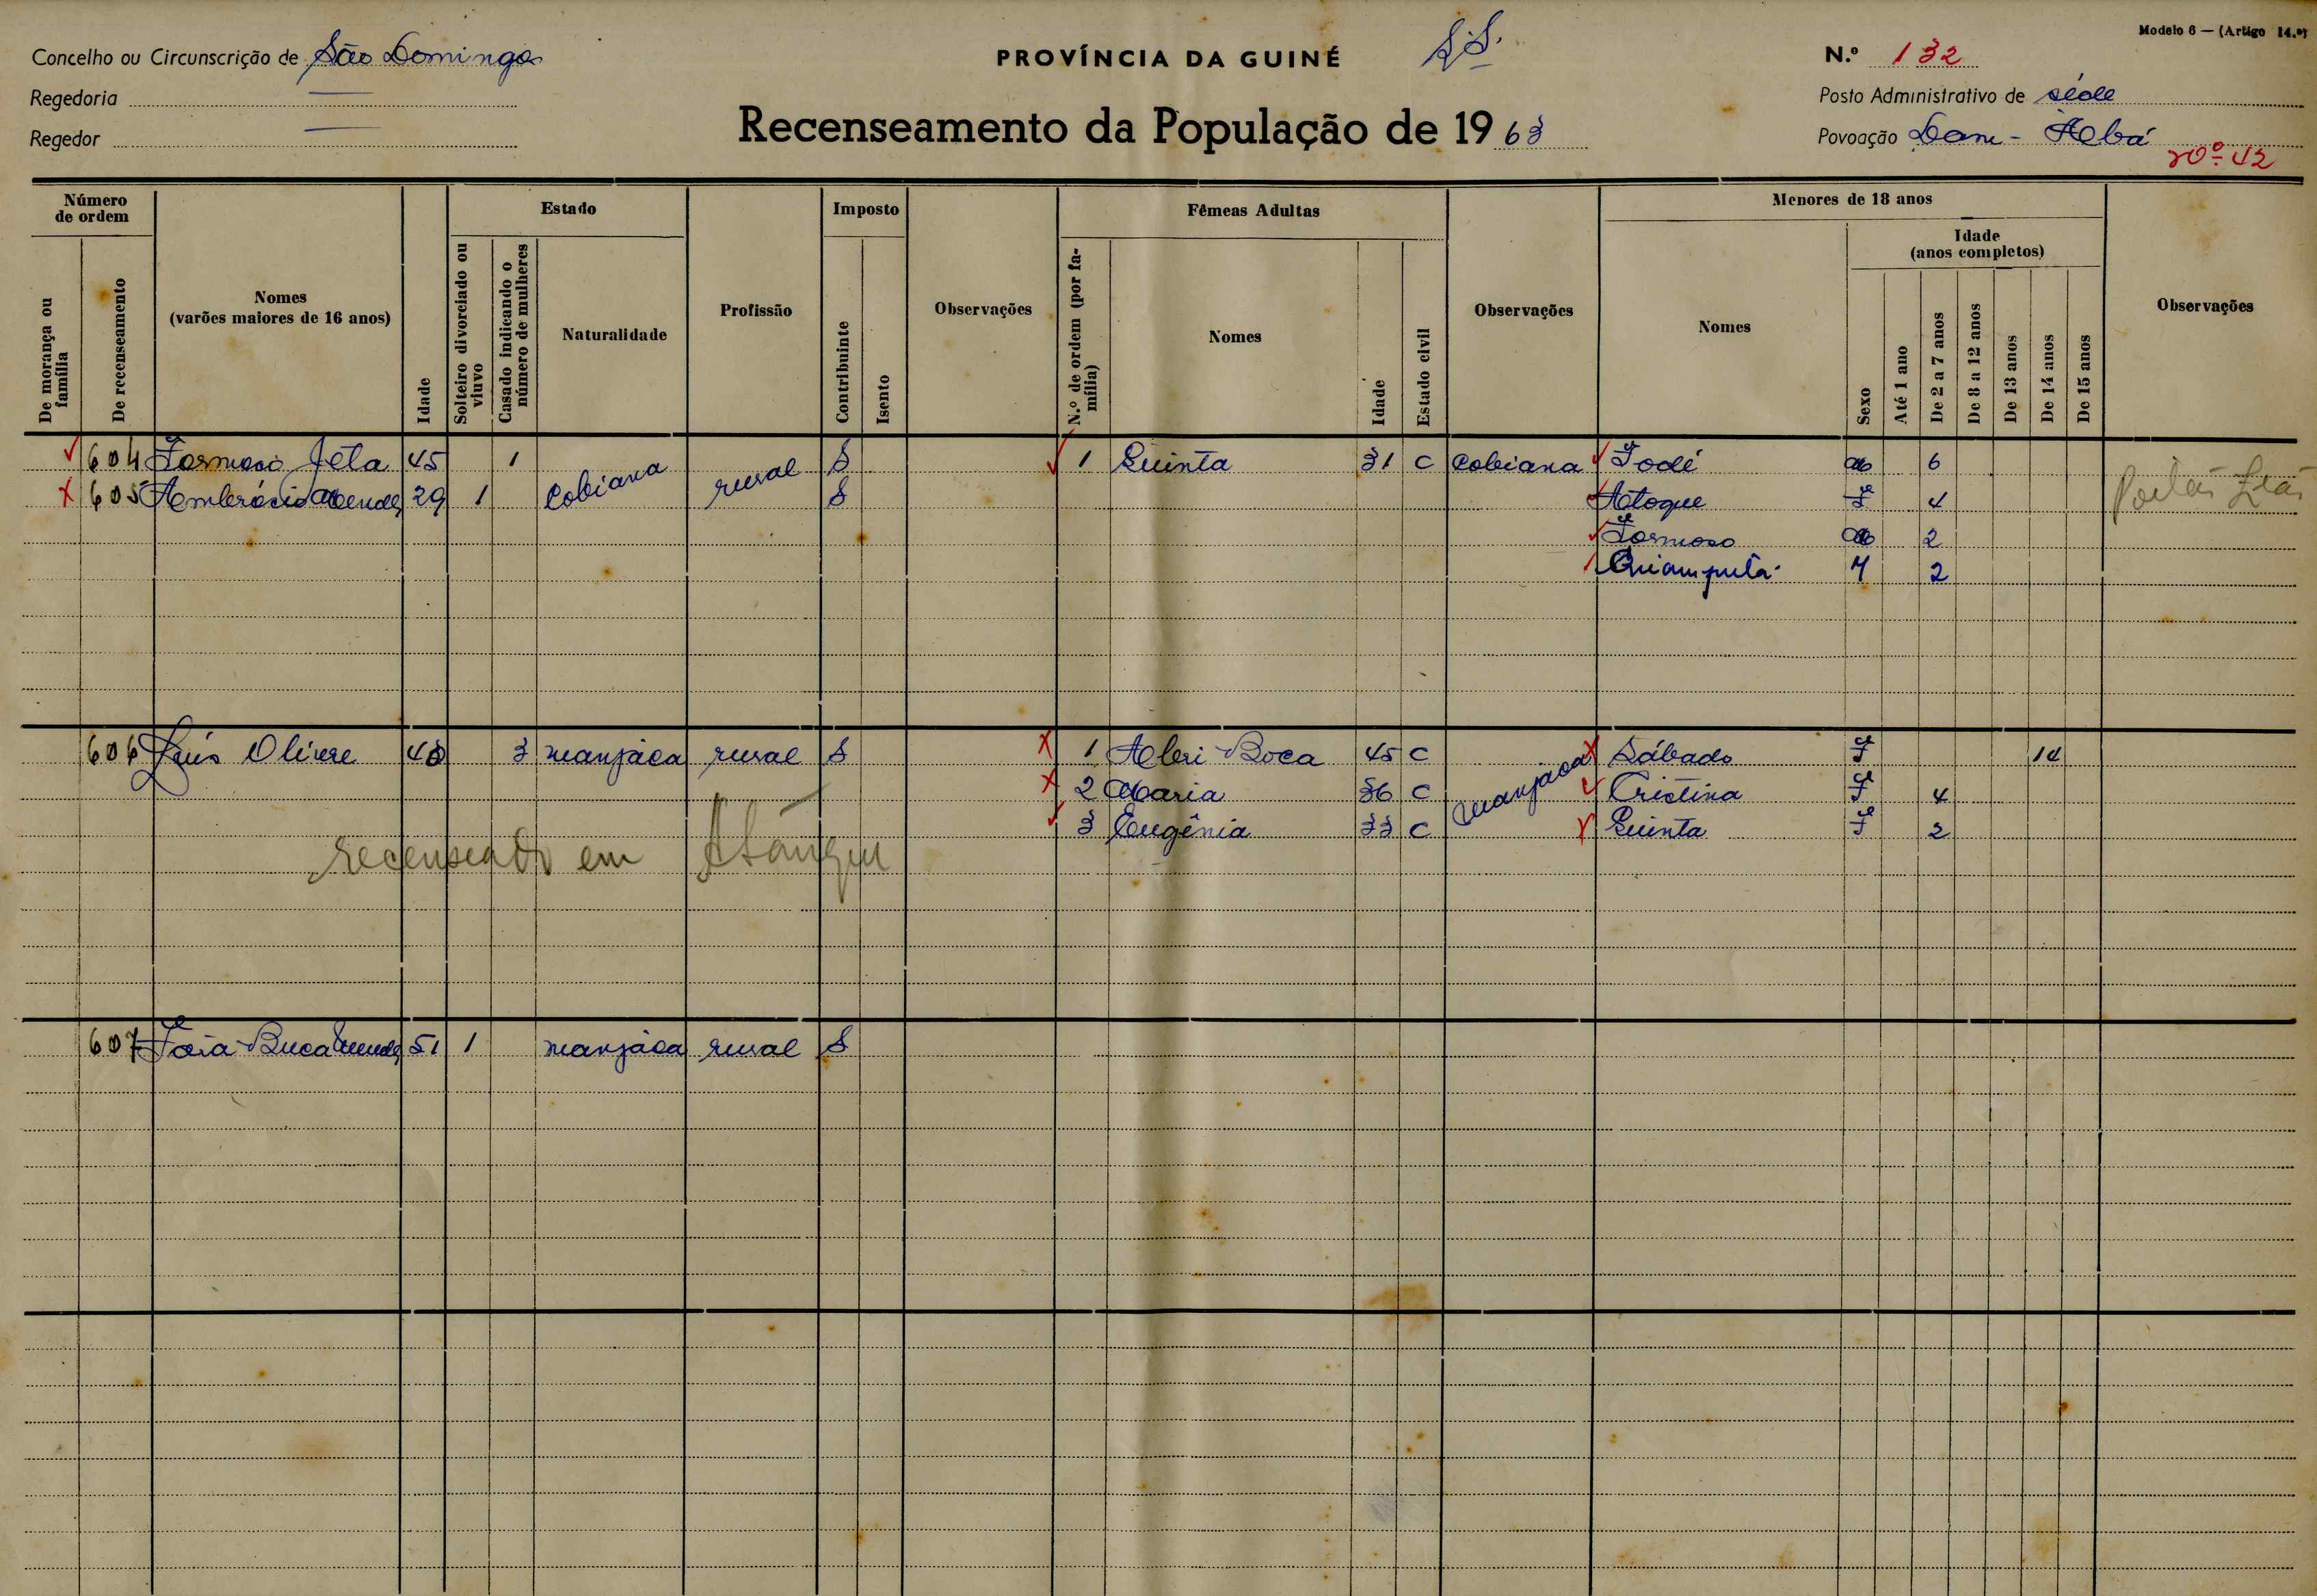 Modelo 6 — (Artigo 14.º)
Concelho ou Circunscrição de São Domingos
PROVÍNCIA DA GUINÉ
S.S.
N.º 132
Regedoria —
Posto Administrativo de séde
Regedor —
Recenseamento da População de 1963
Povoação
nº 42
Número de ordem
Estado
Imposto
Fêmeas Adultas
Menores de 18 anos
Idade (anos completos)
De morança ou família
De recenseamento
Nomes (varões maiores de 16 anos)
Idade
Solteiro divorciado ou viuvo
Casado indicando o número de mulheres
Naturalidade
Profissão
Contribuinte
Isento
Observações
N.º de ordem (por família)
Nomes
Idade
Estado civil
Observações
Nomes
Sexo
Até 1 ano
De 2 a 7 anos
De 8 a 12 anos
De 13 anos
De 14 anos
De 15 anos
Observações
604 Formoso Jeta 45 1 Cobiana rural S 1 Quinta 31 C Cobiana Fodé M 6
605 Ambrósio Mendes 29 1 S Atoque F 4
Formoso M 2
Quiamputa M 2
606 Luís Olivere 3 manjáca rural S 1 Boca 45 C manjáca Sábado F 14
2 Maria 36 C Cristina F 4
3 Eugênia 33 C Quinta F 2
recenseado em
607 Buca Mendes 51 1 manjáca rural S